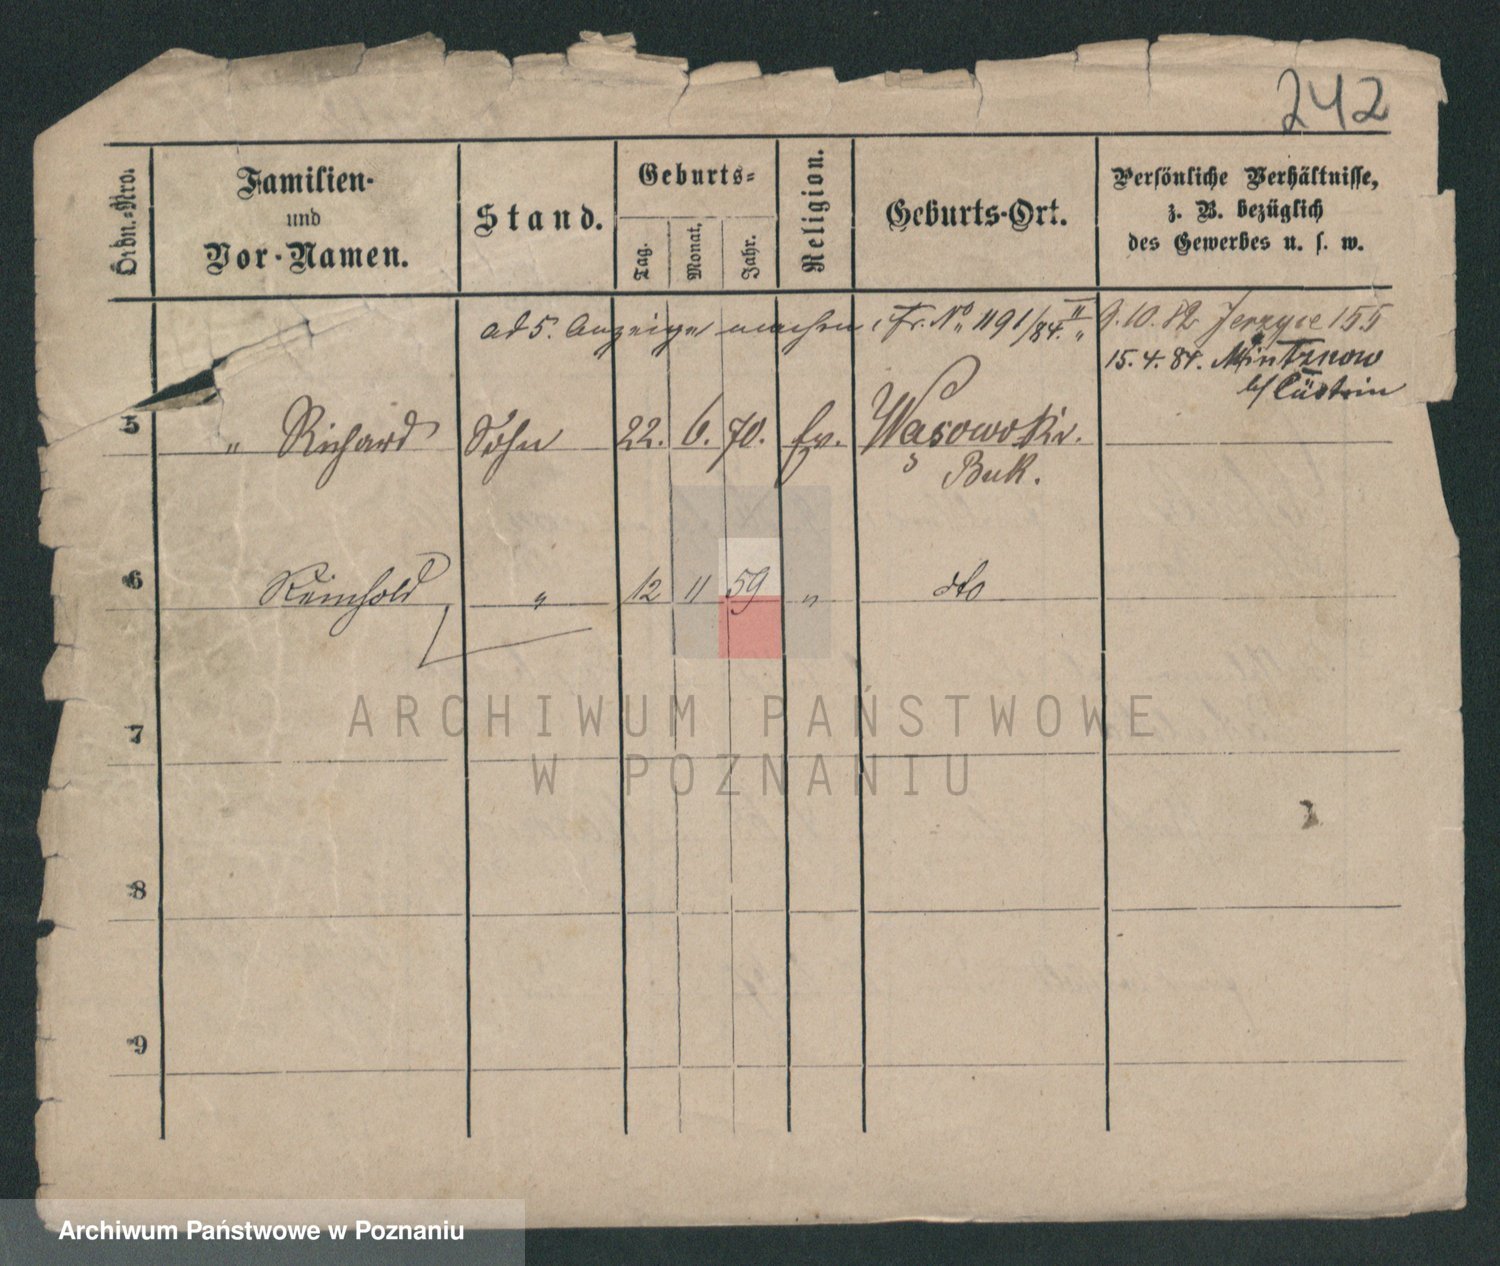 242
Ordn.-Nro.
Familien-
und
Vor-Namen.
Stand.
Geburts-
Tag.
Monat.
Jahr.
Religion.
Geburts-Ort.
Persönliche Verhältnisse,
z. B. bezüglich
des Gewerbes u. s. w.
ad 5. Anzeige machen, Fr. No 1191/84. II
9.10.82 Jerzyce 155
15.4.84. Küstrin
5 " Richard Sohn 22. 6. 70. Ev. Wasowo Kr.
Buk.
6 Reinhold " 12 11 59 " dto
7
8
9
ARCHIWUM PAŃSTWOWE
W POZNANIU
Archiwum Państwowe w Poznaniu